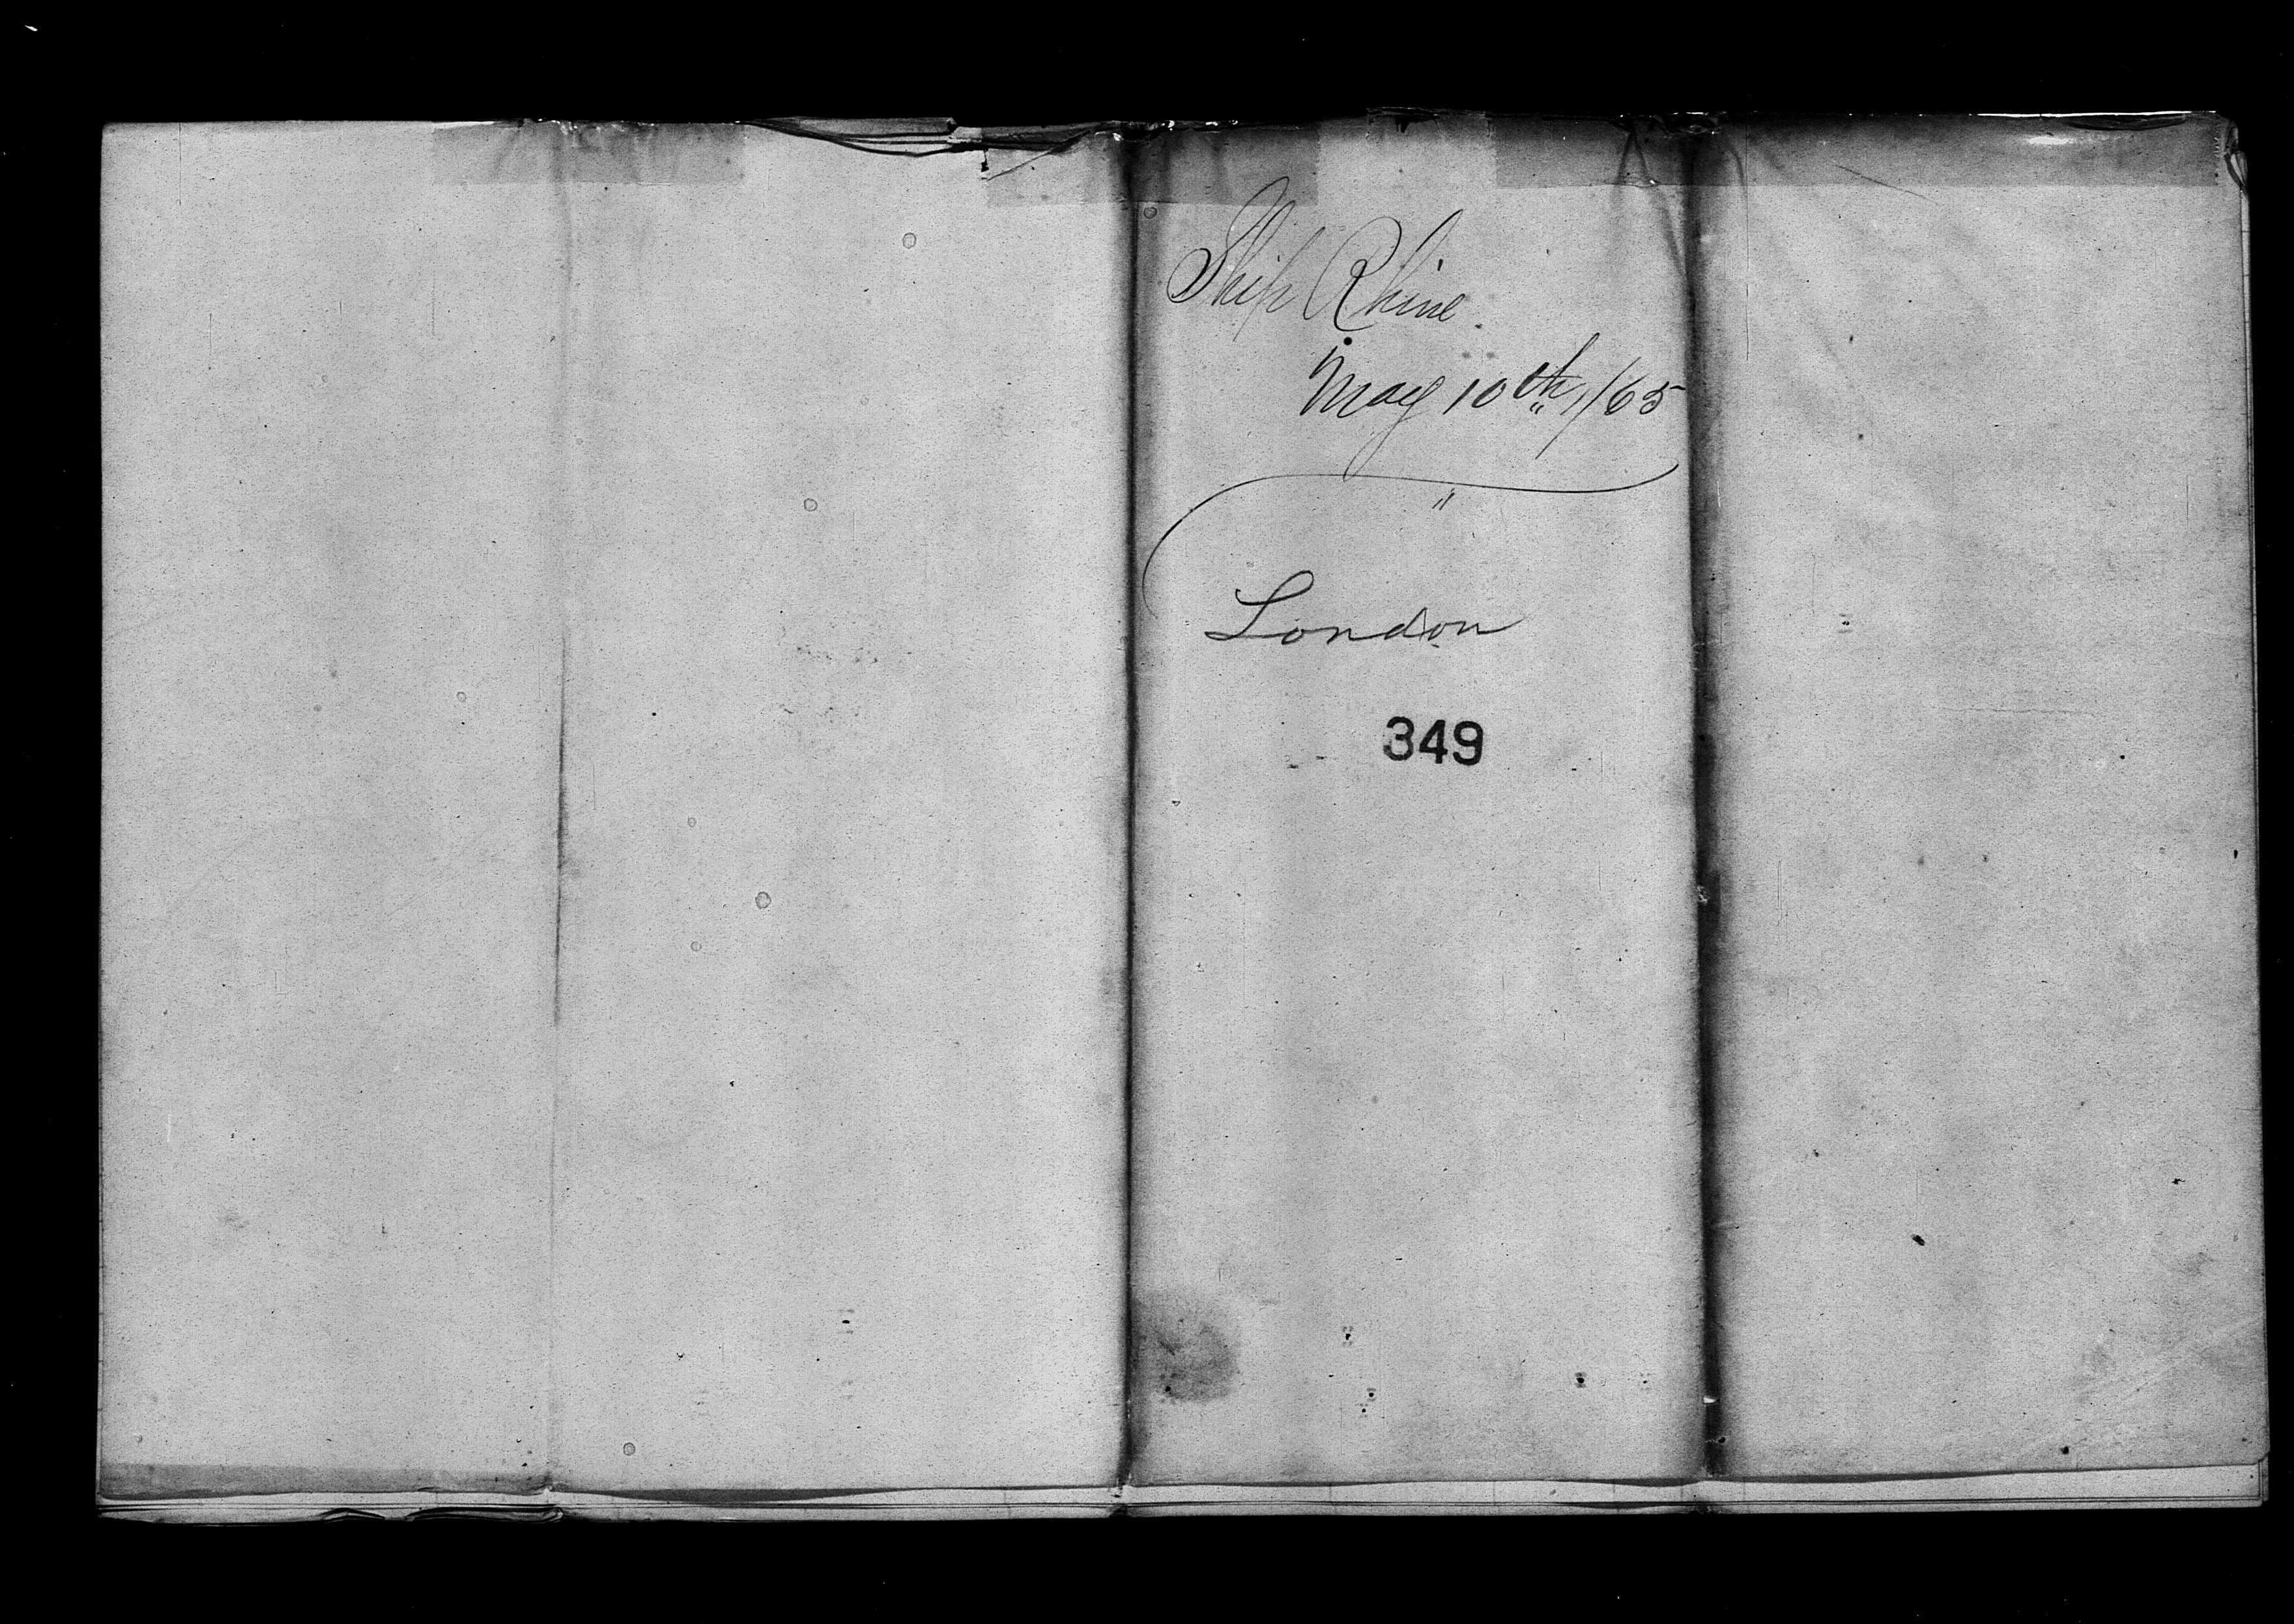 Ship Rhine.
May 10th, /65
"
London
349